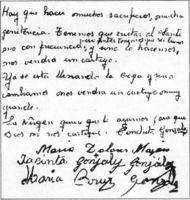 Hay que hacer muchos sacrificios, mucha
penitencia. Tenemos que visitar al Santí
simo con frecuencia, y si no lo hacemos,
nos vendrá un castigo.
Ya se está llenando la Copa y si no
cambiamos nos vendrá un castigo muy
grande.
La Virgen quiere que lo hagamos para que
Dios no nos castigue. Conchita González
María Dolores Mazón
Jacinta González González
María Cruz González